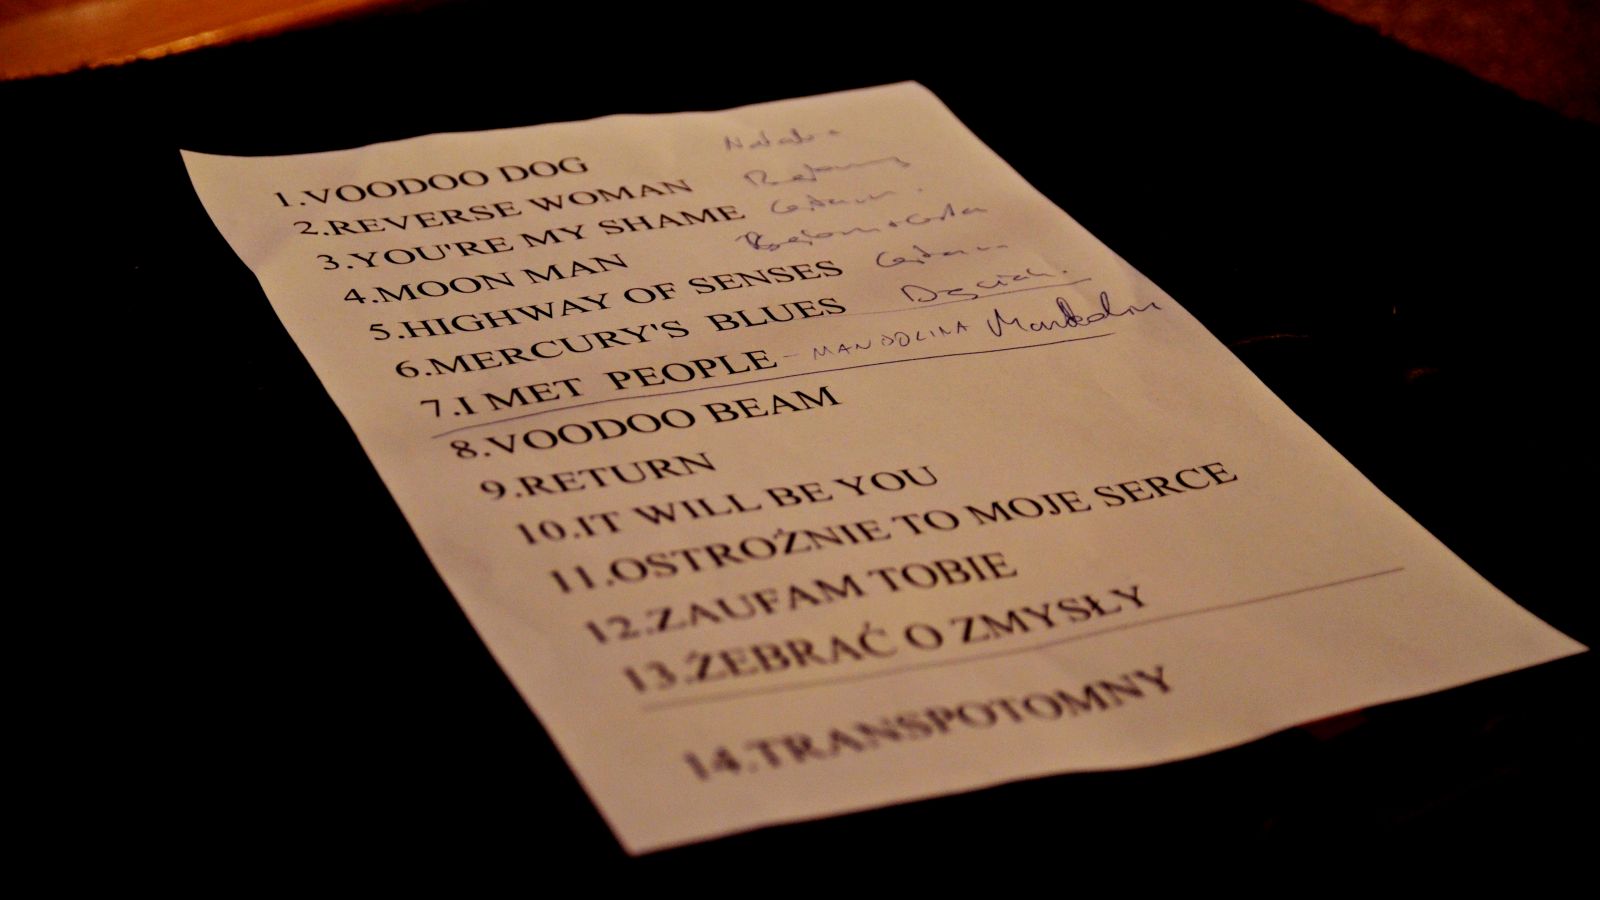 1.VOODOO DOG
2.REVERSE WOMAN
3.YOU'RE MY SHAME
4.MOON MAN
5.HIGHWAY OF SENSES
6.MERCURY'S BLUES
7.I MET PEOPLE - MANDOLINA
8.VOODOO BEAM
9.RETURN
10.IT WILL BE YOU
11.OSTROŻNIE TO MOJE SERCE
12.ZAUFAM TOBIE
13.ŻEBRAĆ O ZMYSŁY
14.TRANSPOTOMNY